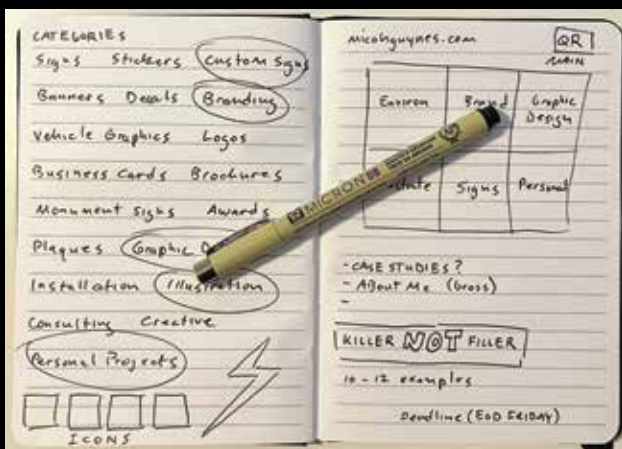 CATEGORIES
Signs Stickers Custom Signs
Banners Decals Branding
Vehicle Graphics Logos
Business Cards Brochures
Monument Signs Awards
Plaques Graphic
Installation Illustration
Consulting Creative
Personal Projects
ICONS
micahguynes.com
QR
MAIN
Environ Brand Graphic Design
Signs Personal
MICRON
- CASE STUDIES?
- About Me (Gross)
-
KILLER NOT FILLER
10-12 examples
Deadline (EOD FRIDAY)